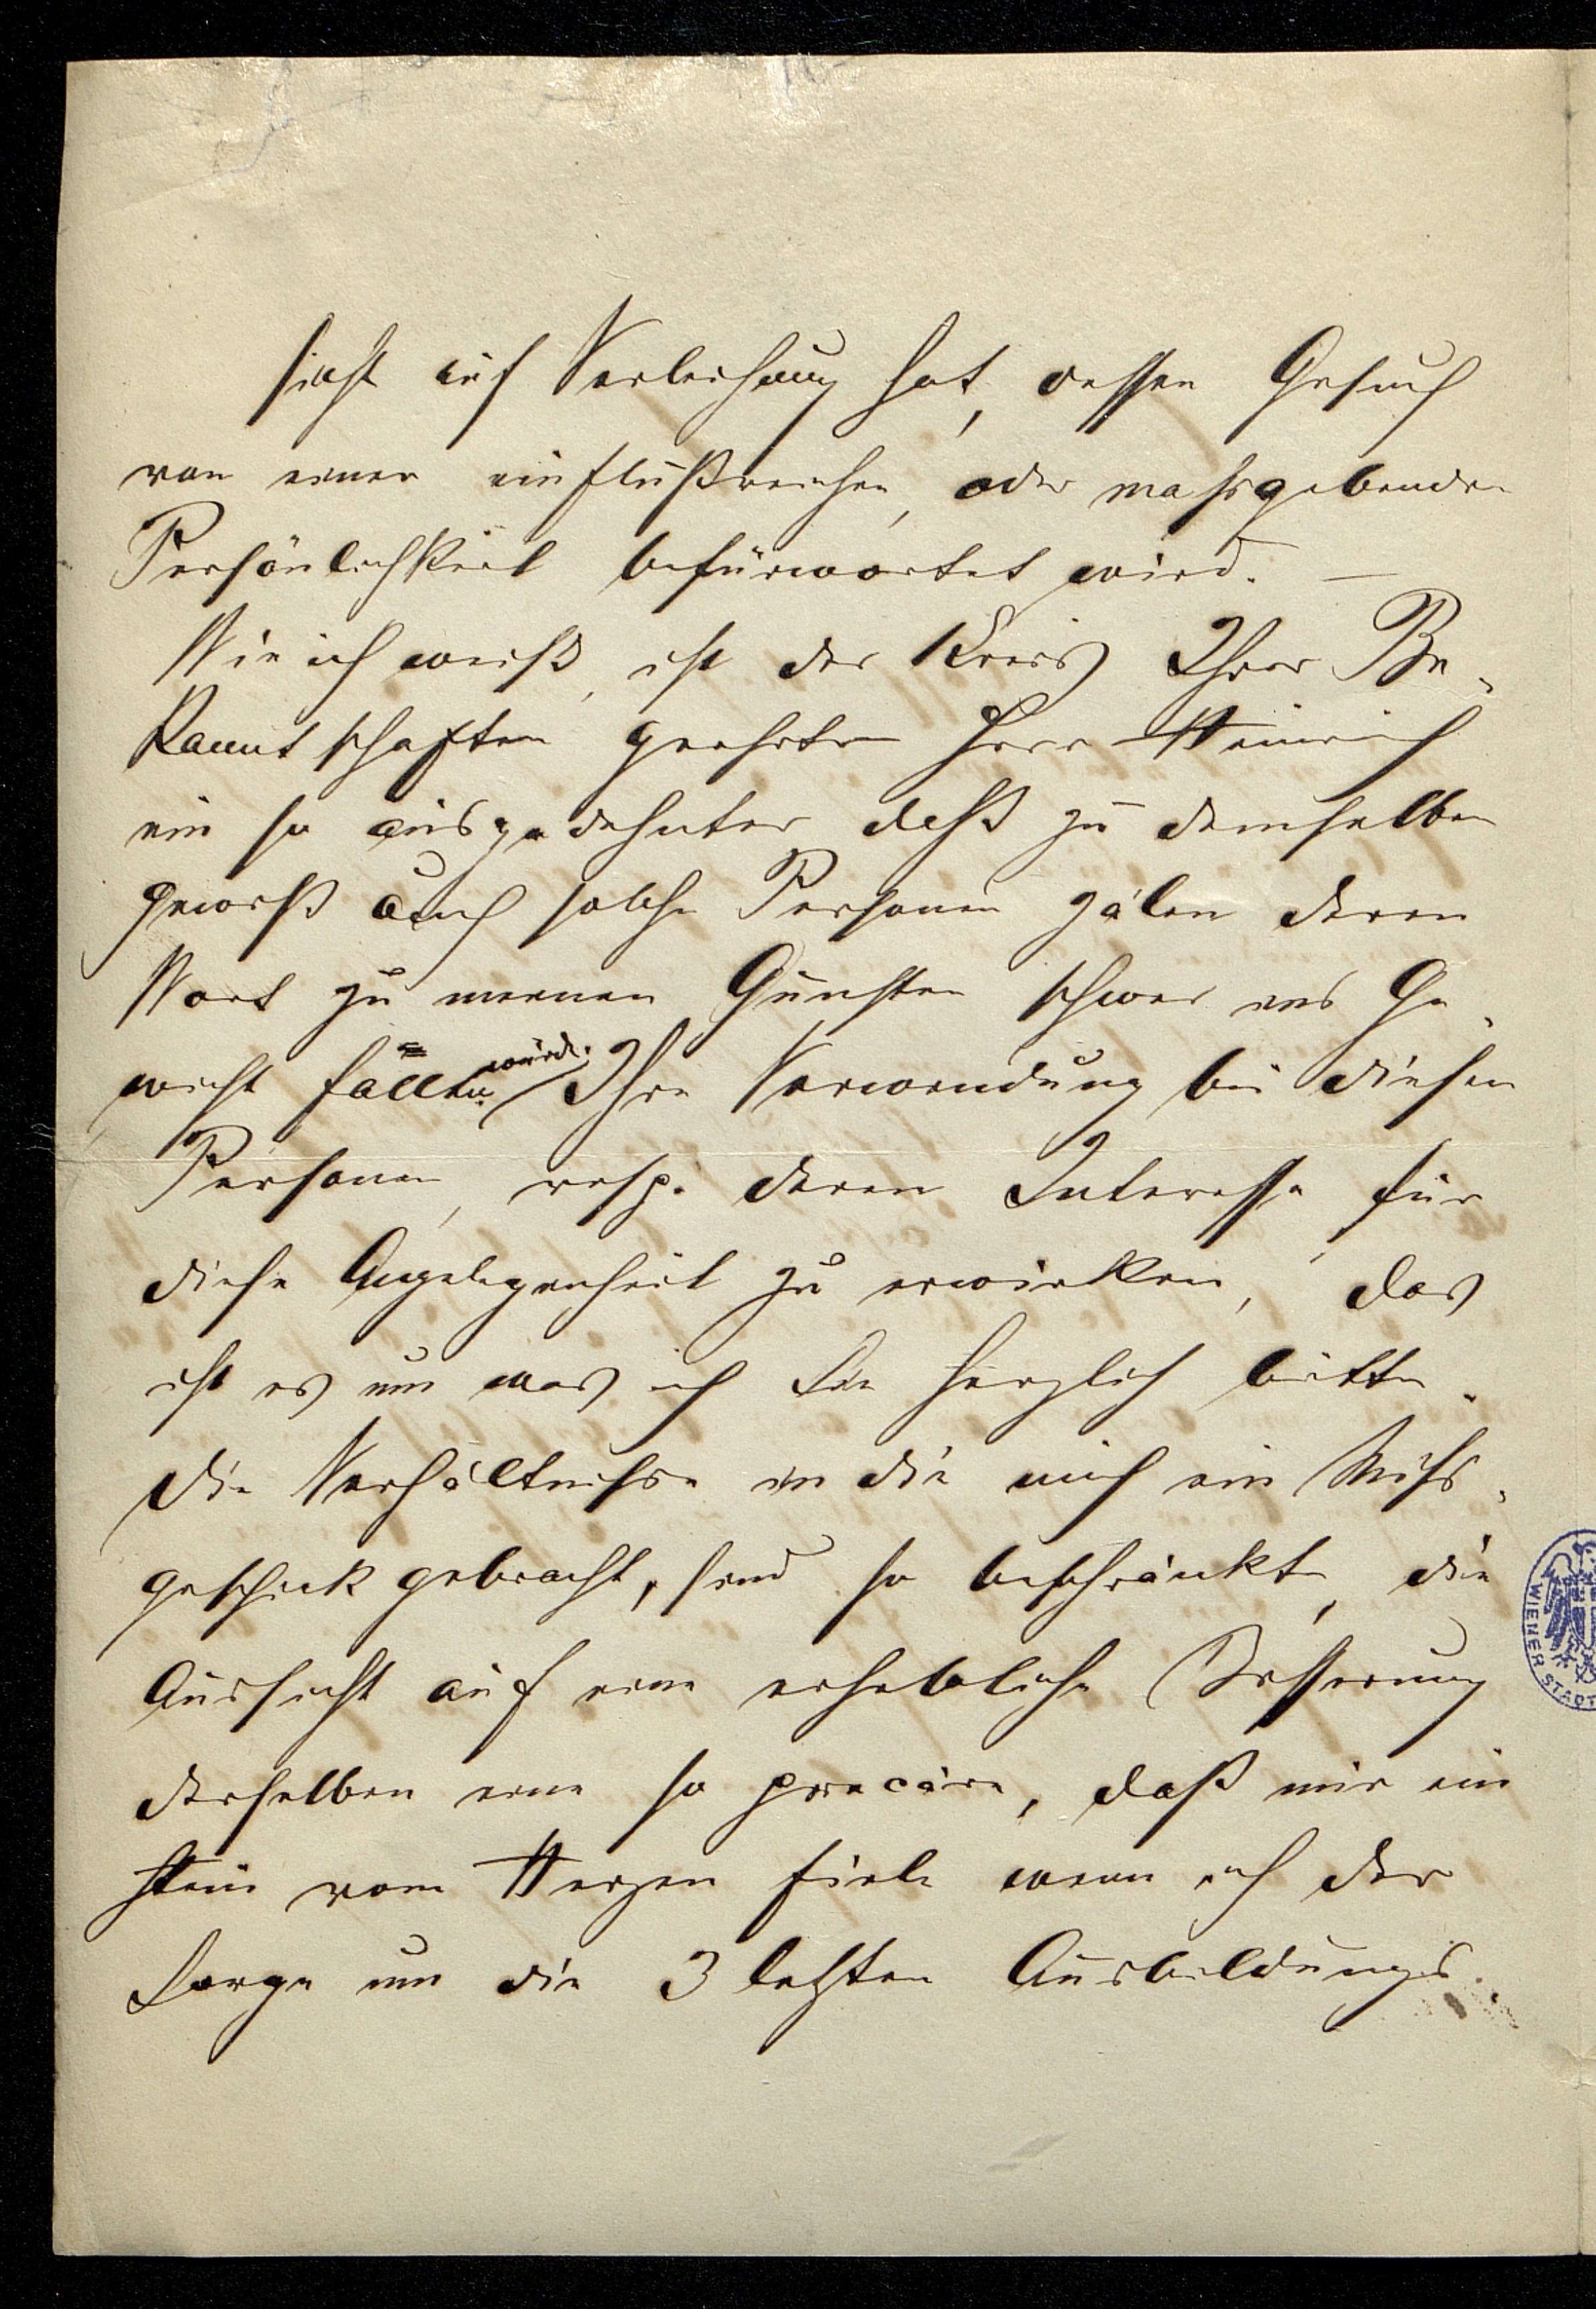 sicht auf Verleihung hat, dessen Gesuch
von einer einflußreichen, oder massgebenden
Persönlichkeit befürwortet wird. —
Wie ich weiß, ist der Kreis Ihrer Be-
kanntschaften geehrter Herr Heinrich
ein so ausgedehnter daß zu demselben
gewiß auch solche Personen zälen deren
Wort zu meinen Gunsten schwer ins Ge-
wicht fallen würde. Ihre Verwendung bei diesen
Personen, resp. deren Interesse für
diese Angelegenheit zu erwirken, das
ist es um was ich Sie herzlich bitte.
Die Verhältnisse in die mich ein Miss-
geschick gebracht, sind so beschränkte, die
Aussicht auf eine erhebliche Besserung
derselben eine so precäre, daß mir ein
Stein vom Herzen fiele wenn ich der
Sorge um die 3 letzten Ausbildungs-
WIENER STADT